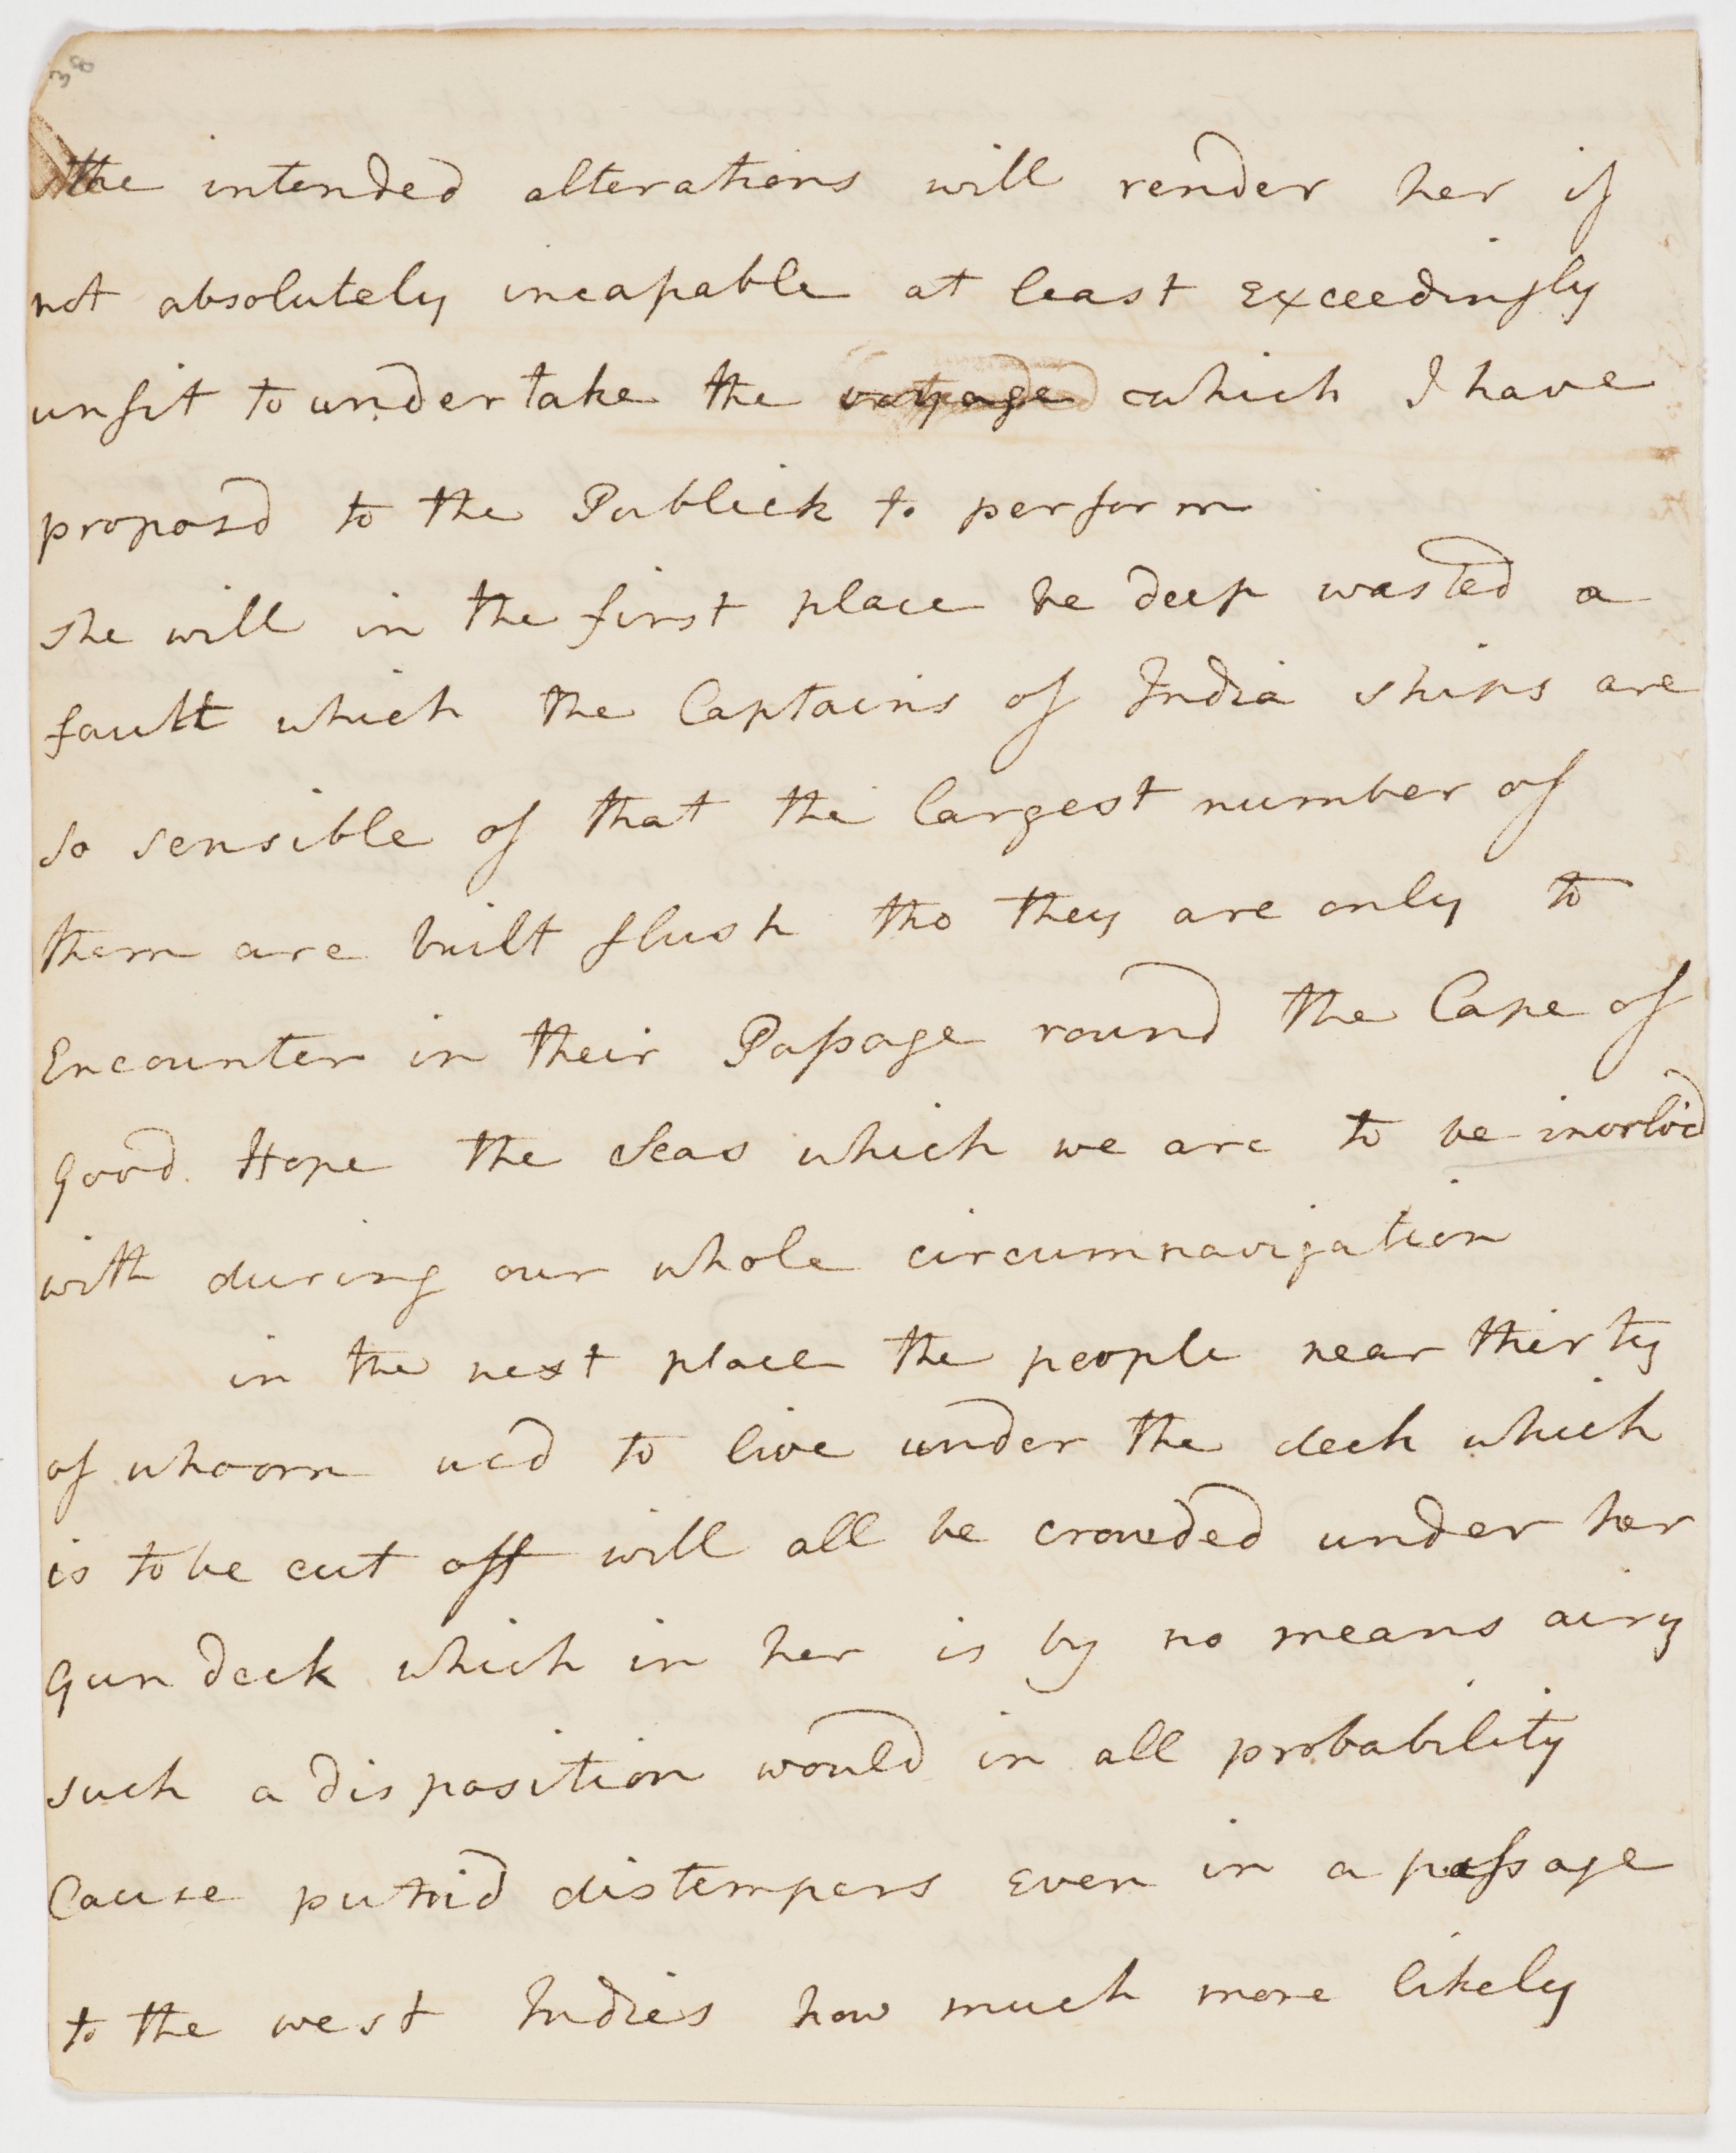 the intended alterations will render her if
not absolutely incapable at least exceedingly
unfit to undertake the voyage which I have
proposd to the Publick to perform
She will in the first place be deep wasted a
fault which the Captains of India ships are
so sensible of that the largest number of
them are built flush tho they are only to
Encounter in their Passage round the Cape of
Good Hope the Seas which we are to be invovld
with during our whole circumnavigation
in the next place the people near thirty
of whoom usd to live under the deck which
is to be cut off will all be crowded under her
Gun deck which in her is by no means airy
such a disposition would in all probability
Cause putrid distempers even in a passage
to the west Indies how much more likely